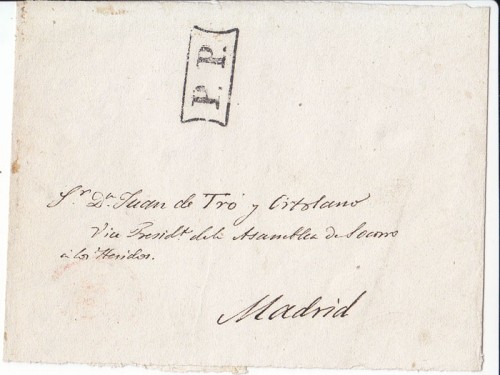 P. P.
Sr. Dn. Juan de Tró y Ortolano
Vice Presidt. de la Asamblea de Socorro
a los Heridos.
Madrid